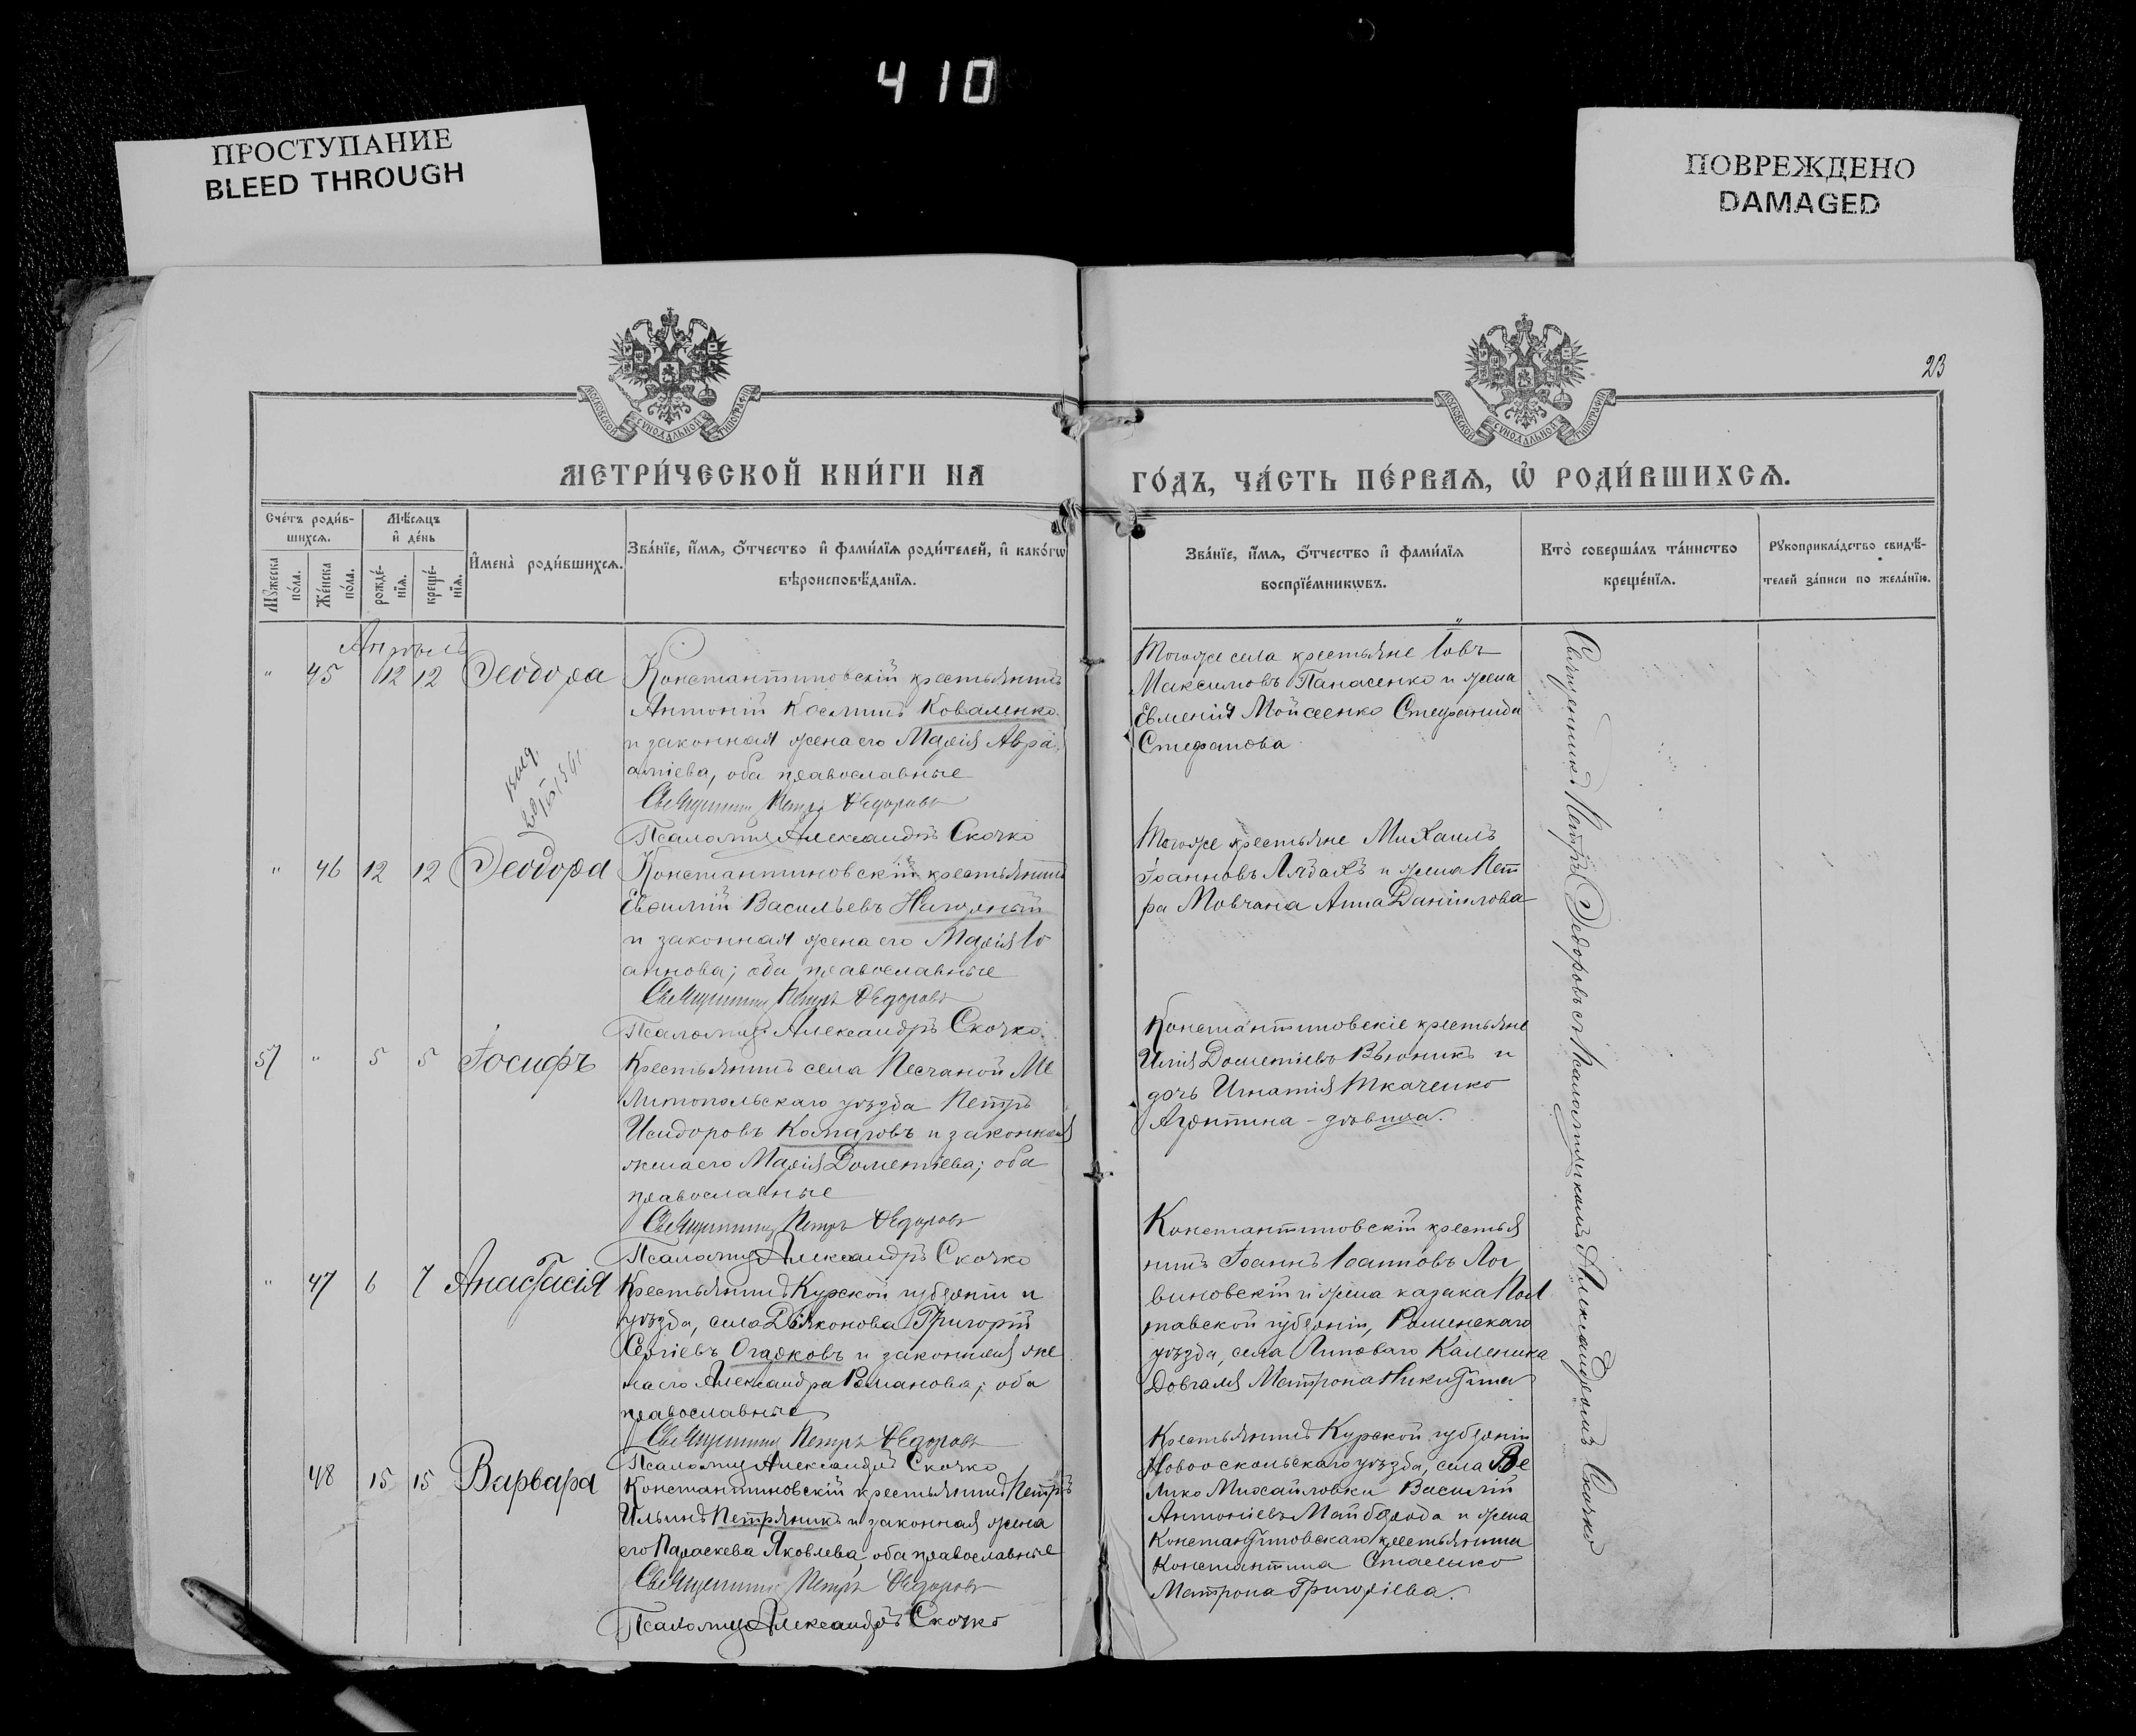 410
ПРОСТУПАНИЕ
BLEED THROUGH
ПОВРЕЖДЕНО
DAMAGED
23
МОСКОВСКОЙ СѴНОДАЛЬНОЙ ТИПОГРАФІИ
МОСКОВСКОЙ СѴНОДАЛЬНОЙ ТИПОГРАФІИ
МЕТРИ́ЧЕСКОЙ КНИ́ГИ НА
ГО́ДЪ, ЧА́СТЬ ПЕ́РВАѦ, Ѽ РОДИ́ВШИХСѦ.
Сче́тъ роди́в-
шихсѧ.
Мꙋ́жеска по́ла.
Же́нска по́ла.
Мѣ́сѧцъ
и҆ де́нь
рожде́-нїѧ.
креще́-нїѧ.
И҆мена̀ роди́вшихсѧ.
Зва́нїе, и҆́мѧ, ѻ҆́тчество и҆ фами́лїѧ роди́телей, и҆ како́гѡ
вѣроисповѣ́данїѧ.
Зва́нїе, и҆́мѧ, ѻ҆́тчество и҆ фами́лїѧ
воспрїе́мникѡвъ.
Кто̀ соверша́лъ та́инство
креще́нїѧ.
Рꙋкоприкла́дство свидѣ́-
телей за́писи по жела́нїю.
Апрѣль
" 45 12 12 Ѳеодора
Константиновскій крестьянинъ
Антоній Косминъ Коваленко
и законная жена его Марія Авра
аміева, оба православные
Священникъ Петръ Ѳедоровъ
Псаломщ. Александръ Скочко
Тогоже села крестьяне Іовъ
Максимовъ Панасенко и жена
Евменія Мойсеенко Стефанида
Стефанова
" 46 12 12 Ѳеодора
Константиновскій крестьянинъ
Евѳимій Васильевъ
и законная жена его Марія Іо
аннова; оба православные
Священникъ Петръ Ѳедоровъ
Псаломщ. Александръ Скочко
Тогоже крестьяне Михаилъ
Іоанновъ и жена Пет
ра Мовчана Анна Даніилова
57 " 5 5 Іосифъ
Крестьянинъ села Песчаной Ме
литопольскаго уѣзда Петръ
Исидоровъ Комаровъ и законная
жена его Марія Дометіева; оба
православные
Священникъ Петръ Ѳедоровъ
Псаломщ. Александръ Скочко
Константиновскіе крестьяне
Илія Дометіевъ Вьюникъ и
дочь Игнатія Ткаченко
Агрипина - дѣвица.
" 47 6 7 Анастасія
Крестьянинъ Курской губерніи и
уѣзда, села Дьяконова Григорій
Сергіевъ Огарковъ и законная же
на его Александра Романова; оба
православные
Священникъ Петръ Ѳедоровъ
Псаломщ. Александръ Скочко
Константиновскій крестья
нинъ Іоаннъ Іоанновъ Лог
виновскій и жена казака Пол
тавской губерніи, Роменскаго
уѣзда, села Липоваго Каленика
Довгаля Матрона Никитина
48 15 15 Варвара
Константиновскій крестьянинъ Петръ
Ильинъ Петряникъ и законная жена
его Параскева Яковлева, оба православные
Священникъ Петръ Ѳедоровъ
Псаломщ. Александръ Скочко
Крестьянинъ Курской губерніи
Новооскольскаго уѣзда, села Ве
лико Михайловки Василій
Антоніевъ Майборода и жена
Константиновскаго крестьянина
Константина Стаенко
Матрона Григоріева.
Священникъ Петръ Ѳедоровъ съ Псаломщикомъ Александромъ Скочко